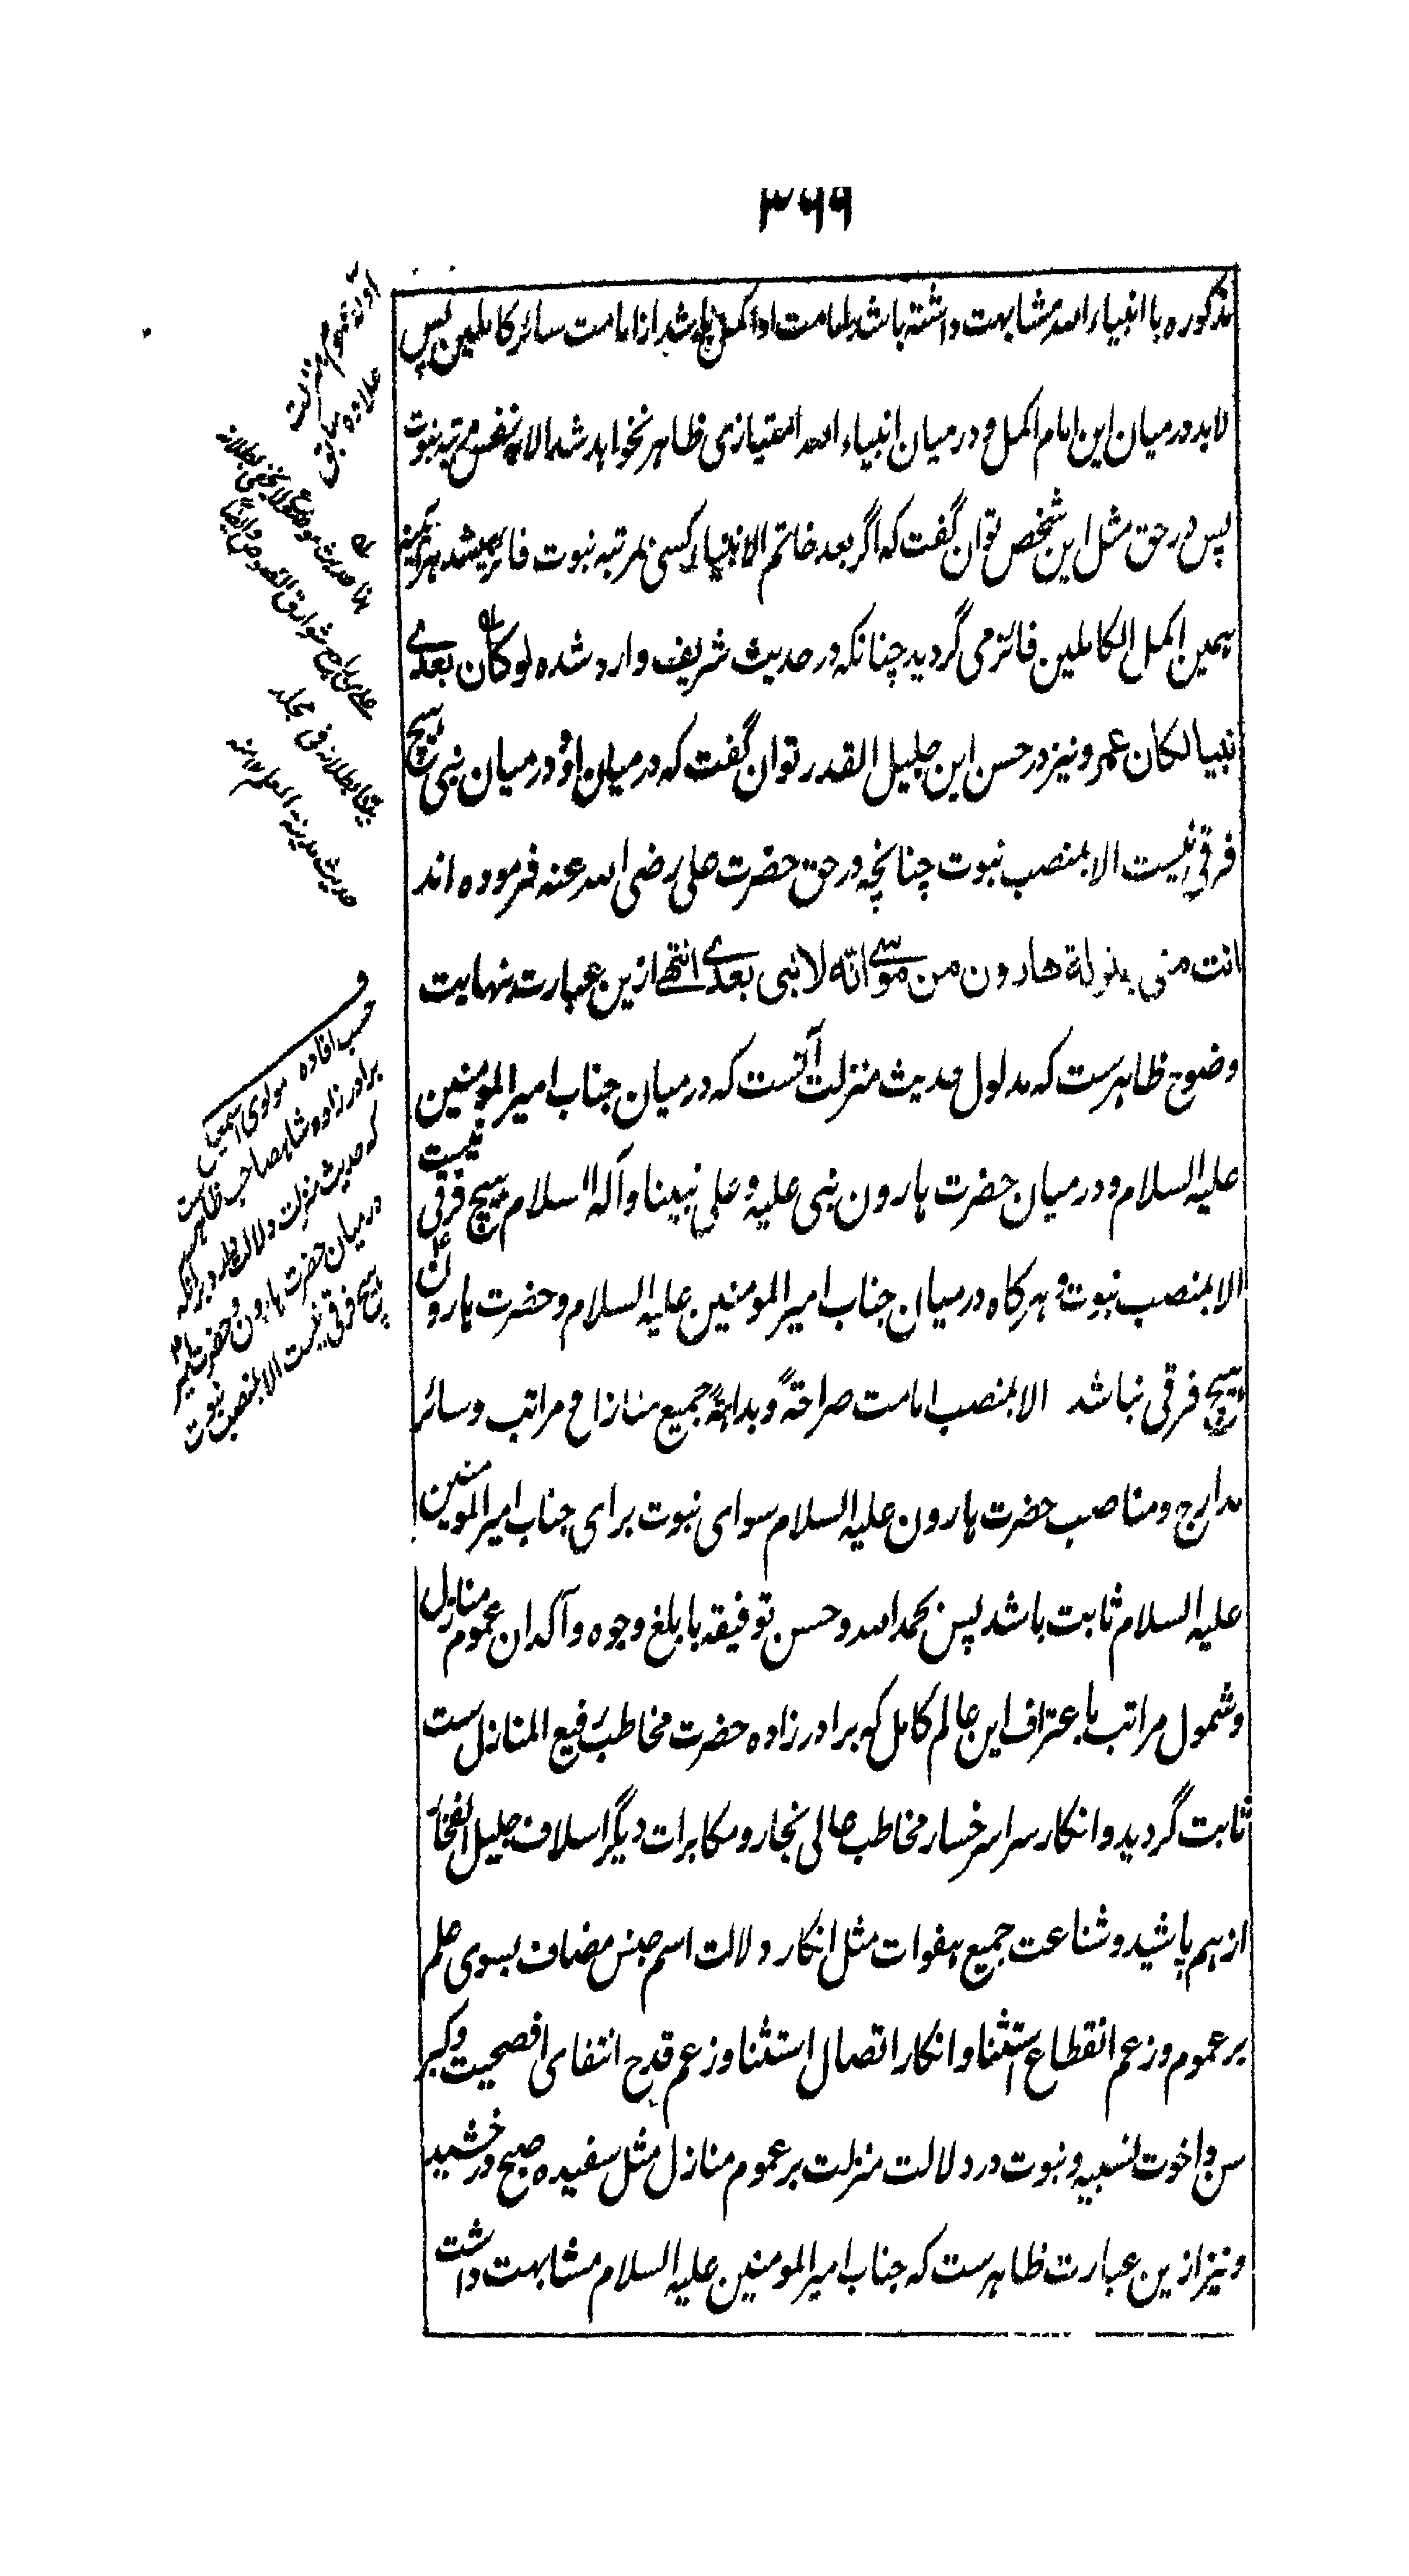 ۳۶۹
مذکوره با انبیاء الله مشابهت داشته باشد امامت او اکمل باشد از امامت سائر کاملین پس
لابد در میان این امام اکمل و در میان انبیاء الله امتیازی ظاهر نخواهد شد الا بنفس مرتبه نبوت
پس در حق مثل این شخص توان گفت که اگر بعد خاتم الانبیاء کسی بمرتبه نبوت فائز میشد هر آئینه
همین اکمل الکاملین فائز می گردید چنانکه در حدیث شریف وارد شده لو کان بعدی
نبیا لکان عمر و نیز در حسن این جلیل القدر توان گفت که در میان او و در میان نبی هیچ
فرقی نیست الا بمنصب نبوت چنانچه در حق حضرت علی رضی الله عنه فرموده اند
انت منی بمنزلة هارون من موسی انه لا نبی بعدی انتهی ازین عبارت نهایت
وضوح ظاهرست که مدلول حدیث منزلت آنست که در میان جناب امیر المومنین
علیه السلام و در میان حضرت هارون نبی علیه و علی نبینا و آله السلام هیچ فرقی نیست
الا بمنصب نبوت و هرگاه در میان جناب امیر المومنین علیه السلام و حضرت هارون ع
هیچ فرقی نباشد الا بمنصب امامت صراحةً و بداهةً جمیع منازل و مراتب و سائر
مدارج و مناصب حضرت هارون علیه السلام سوای نبوت برای جناب امیر المومنین
علیه السلام ثابت باشد پس بحمد الله و حسن توفیقه بابلغ وجوه و آکد آن عموم منازل
و شمول مراتب باعتراف این عالم کامل که برادر زاده حضرت مخاطب رفیع المنازل ست
ثابت گردید و انکار سراسر خسار مخاطب عالی نجار و مکابرات دیگر اسلاف جلیل الفخار
از هم پاشید و شناعت جمیع هفوات مثل انکار دلالت اسم جنس مضاف بسوی علم
بر عموم و زعم انقطاع استثنا و انکار اتصال استثنا و زعم قدح انتفای افصحیت و کبر
سن و اخوت نسبیه و نبوت در دلالت منزلت بر عموم منازل مثل سفیده صبح درخشید
و نیز ازین عبارت ظاهرست که جناب امیر المومنین علیه السلام مشابهت داشت
عموم منزلت
علاوه
هذا حدیث موضوع لا یخفی بطلانه
علی شوارق النصوص و ایضا
بطلانه فی مجلد
حدیث مدینة العلم ۱۲ منه
ف
حسب افاده مولوی اسمعیل
برادر زاده شاهصاحب ظاهرست
که حدیث منزلت دلالت دارد بر آنکه
در میان حضرت هارون و حضرت امیر ع
هیچ فرقی نیست الا بمنصب نبوت